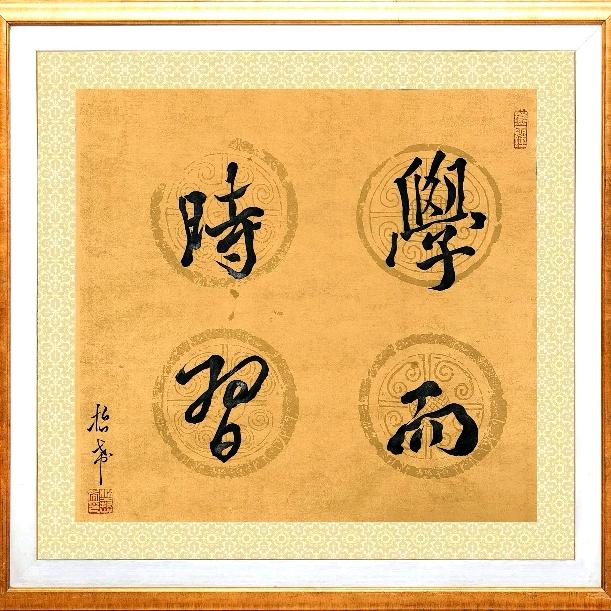 學而
時習